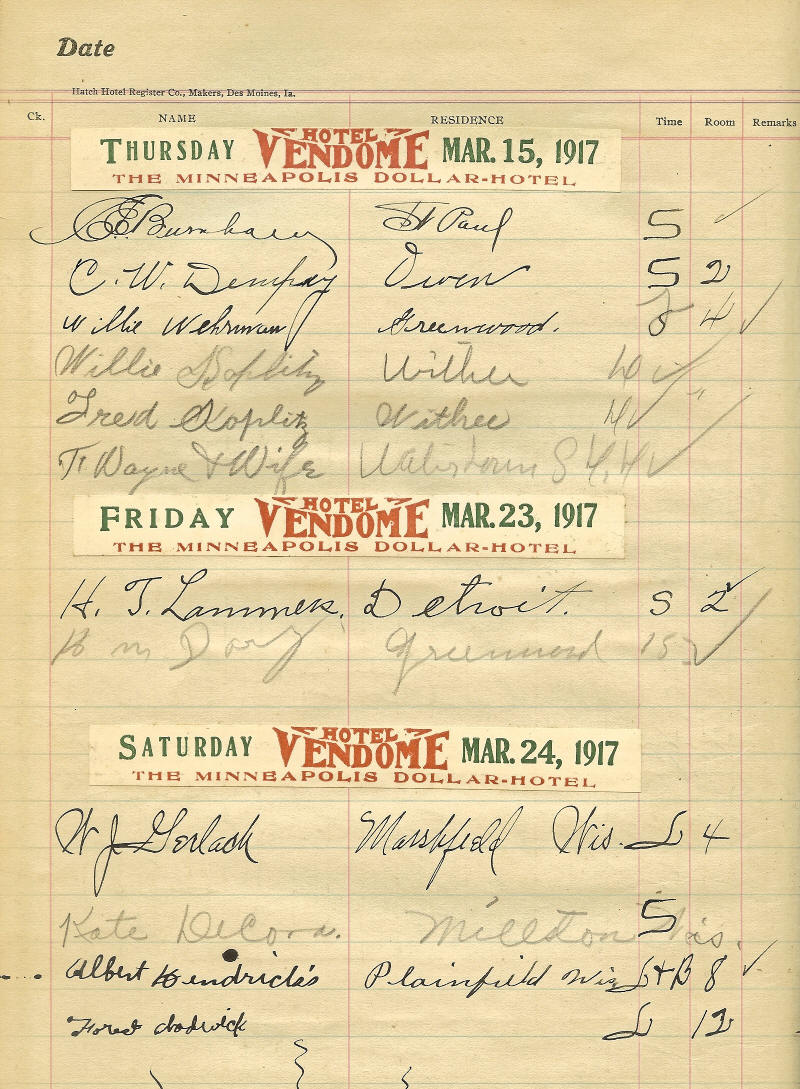 Date
Hatch Hotel Register Co., Makers, Des Moines, Ia.
Ck. NAME RESIDENCE Time Room Remarks
THURSDAY HOTEL VENDOME MAR. 15, 1917
THE MINNEAPOLIS DOLLAR-HOTEL
Burnham St Paul S
C. W. Dempsey Owen S 2
Willie Wehrman Greenwood. 8 4
Willie Koplitz Withee
Fred Koplitz Withee 4
T. Wayne & Wife
FRIDAY HOTEL VENDOME MAR. 23, 1917
THE MINNEAPOLIS DOLLAR-HOTEL
H. T. Lammers. Detroit. S 2
Greenwood
SATURDAY HOTEL VENDOME MAR. 24, 1917
THE MINNEAPOLIS DOLLAR-HOTEL
W J Gerlach Marshfield Wis. L 4
Kate DeCora. Millston Wis. S
Albert Hendricks Plainfield Wis L & B 8
L 12